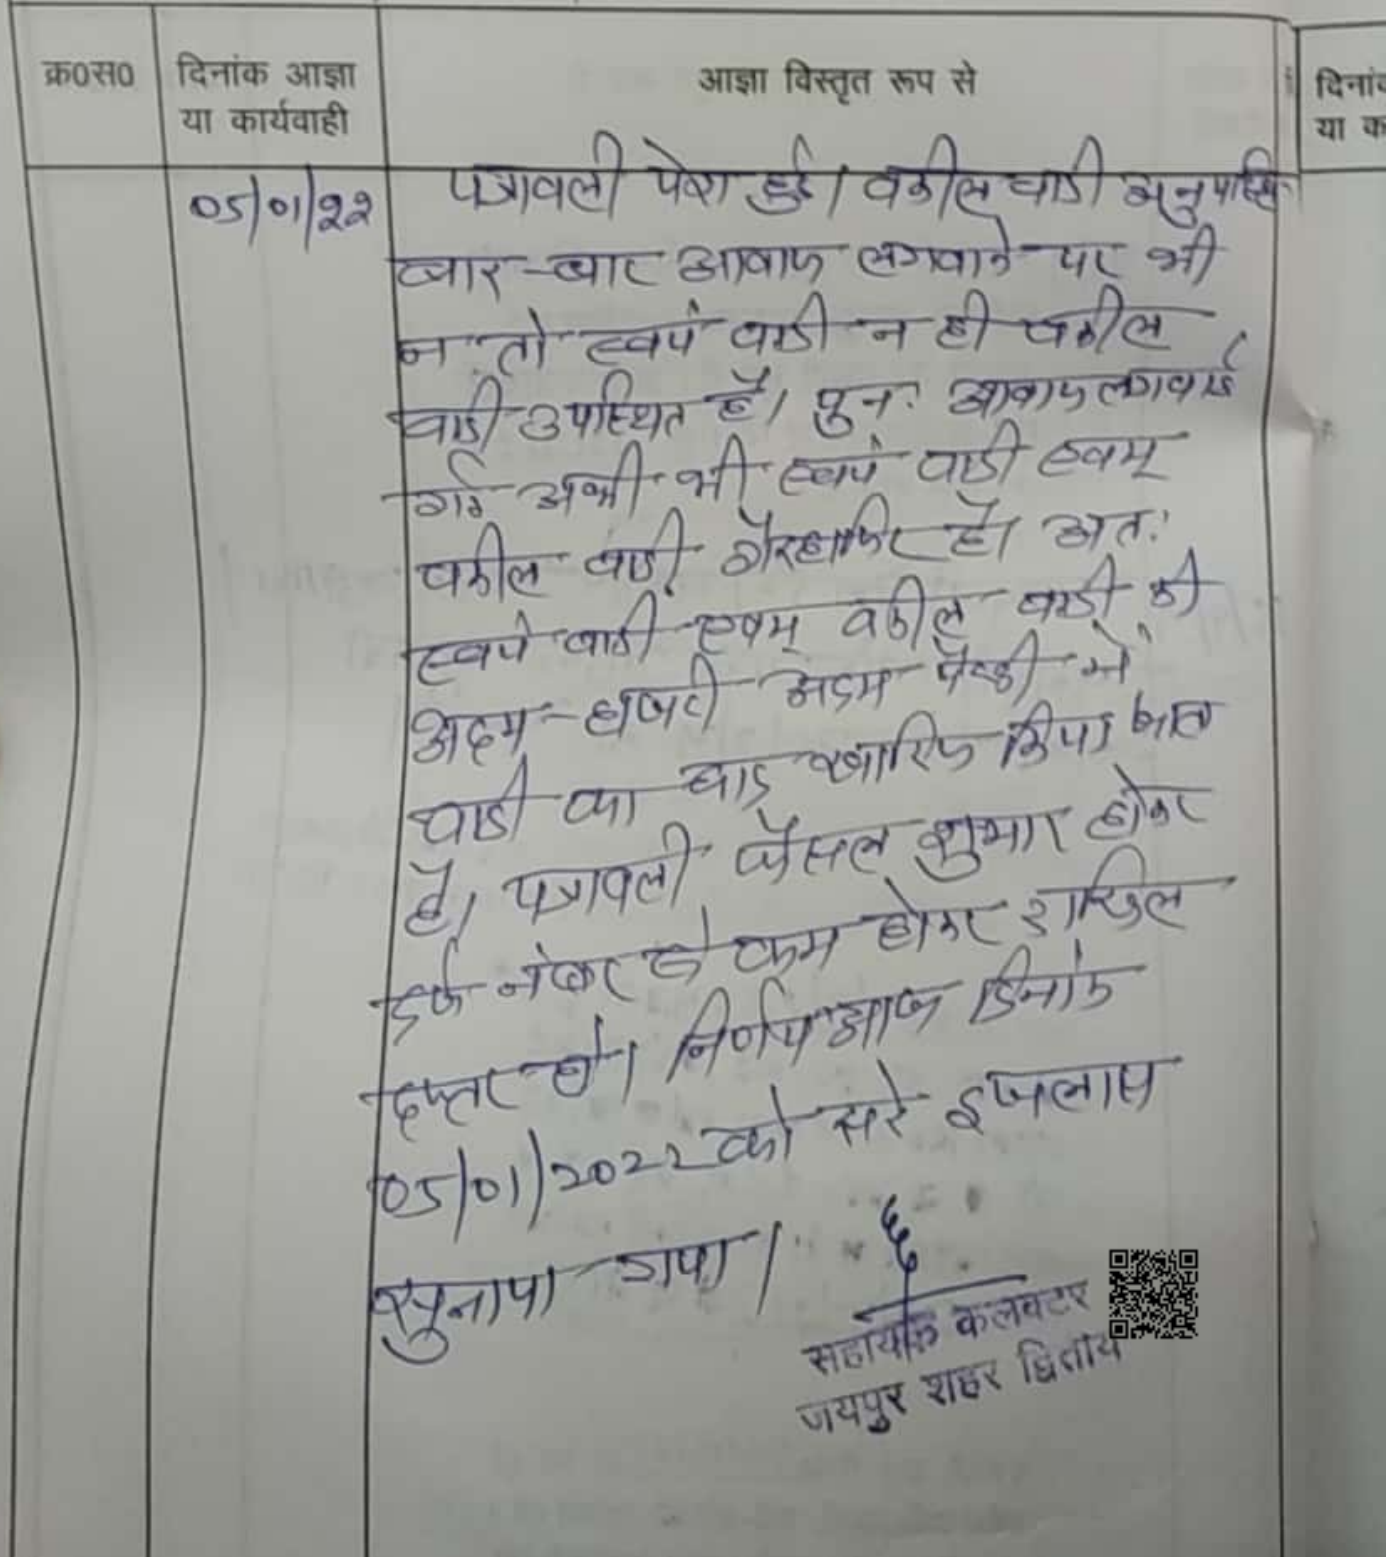 क्र०स०
दिनांक आज्ञा
या कार्यवाही
आज्ञा विस्तृत रूप से
दिनांक
या क
05/01/22
पत्रावली पेश हुई। वकील वादी अनुपस्थि
बार-बार आवाज लगवाने पर भी
न तो स्वयं वादी न ही वकील
वादी उपस्थित है। पुनः आवाज लगवाई
गई अभी भी स्वयं वादी एवम्
वकील वादी गैरहाजिर है। अतः
स्वयं वादी एवम् वकील वादी की
अदम-हाजरी अदम पैरवी में
वादी का वाद खारिज किया जाता
है। पत्रावली फैसल शुमार होकर
दर्ज नंबर से कम होकर दाखिल
दफ्तर हो। निर्णय आज दिनांक
05/01/2022 को सरे इजलास
सुनाया गया।
सहायक कलक्टर
जयपुर शहर द्वितीय